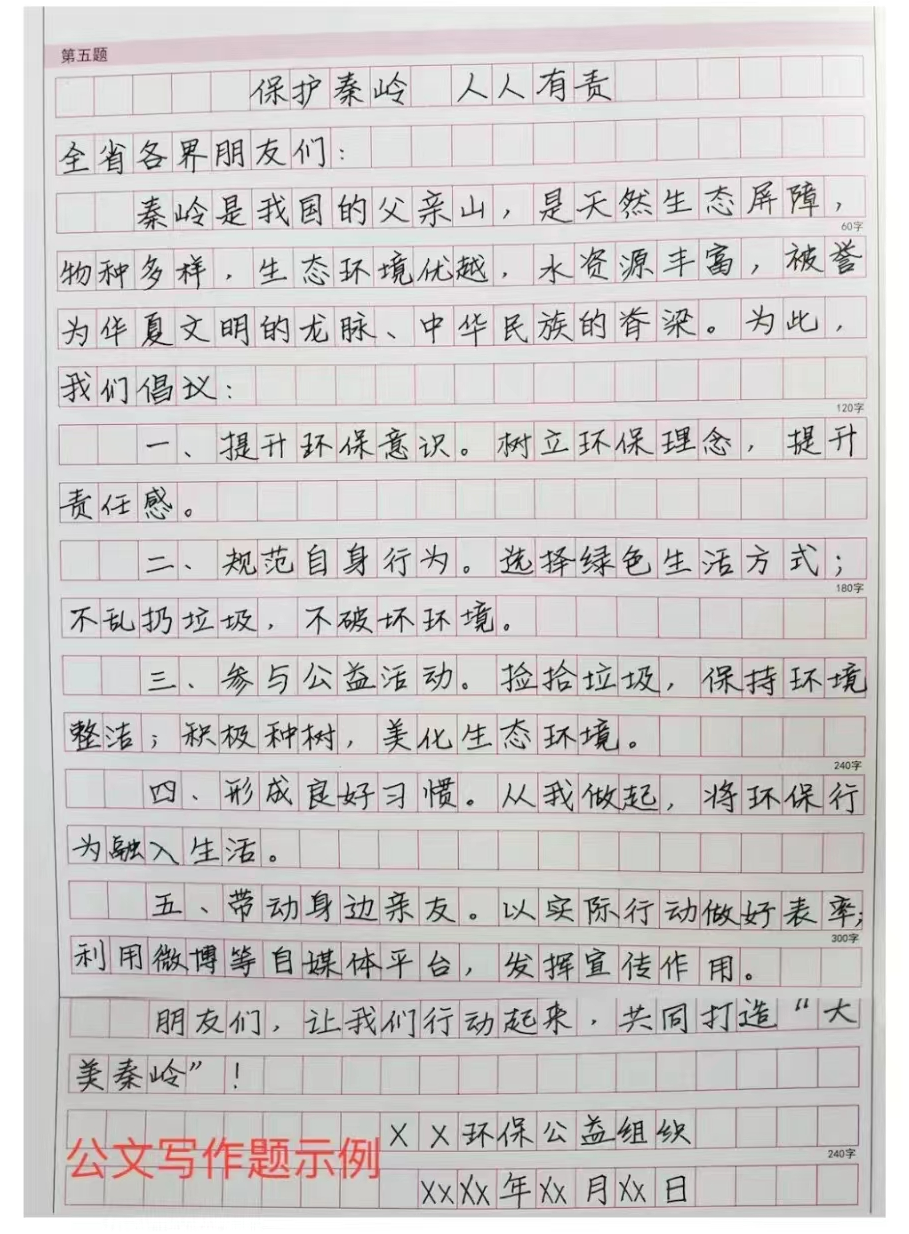 第五题
保护秦岭 人人有责
全省各界朋友们：
秦岭是我国的父亲山，是天然生态屏障，
60字
物种多样，生态环境优越，水资源丰富，被誉
为华夏文明的龙脉、中华民族的脊梁。为此，
我们倡议：
120字
一、提升环保意识。树立环保理念，提升
责任感。
二、规范自身行为。选择绿色生活方式；
180字
不乱扔垃圾，不破坏环境。
三、参与公益活动。捡拾垃圾，保持环境
整洁；积极种树，美化生态环境。
240字
四、形成良好习惯。从我做起，将环保行
为融入生活。
五、带动身边亲友。以实际行动做好表率；
300字
利用微博等自媒体平台，发挥宣传作用。
朋友们，让我们行动起来，共同打造“大
美秦岭”！
XX环保公益组织
240字
公文写作题示例
XXXX年XX月XX日